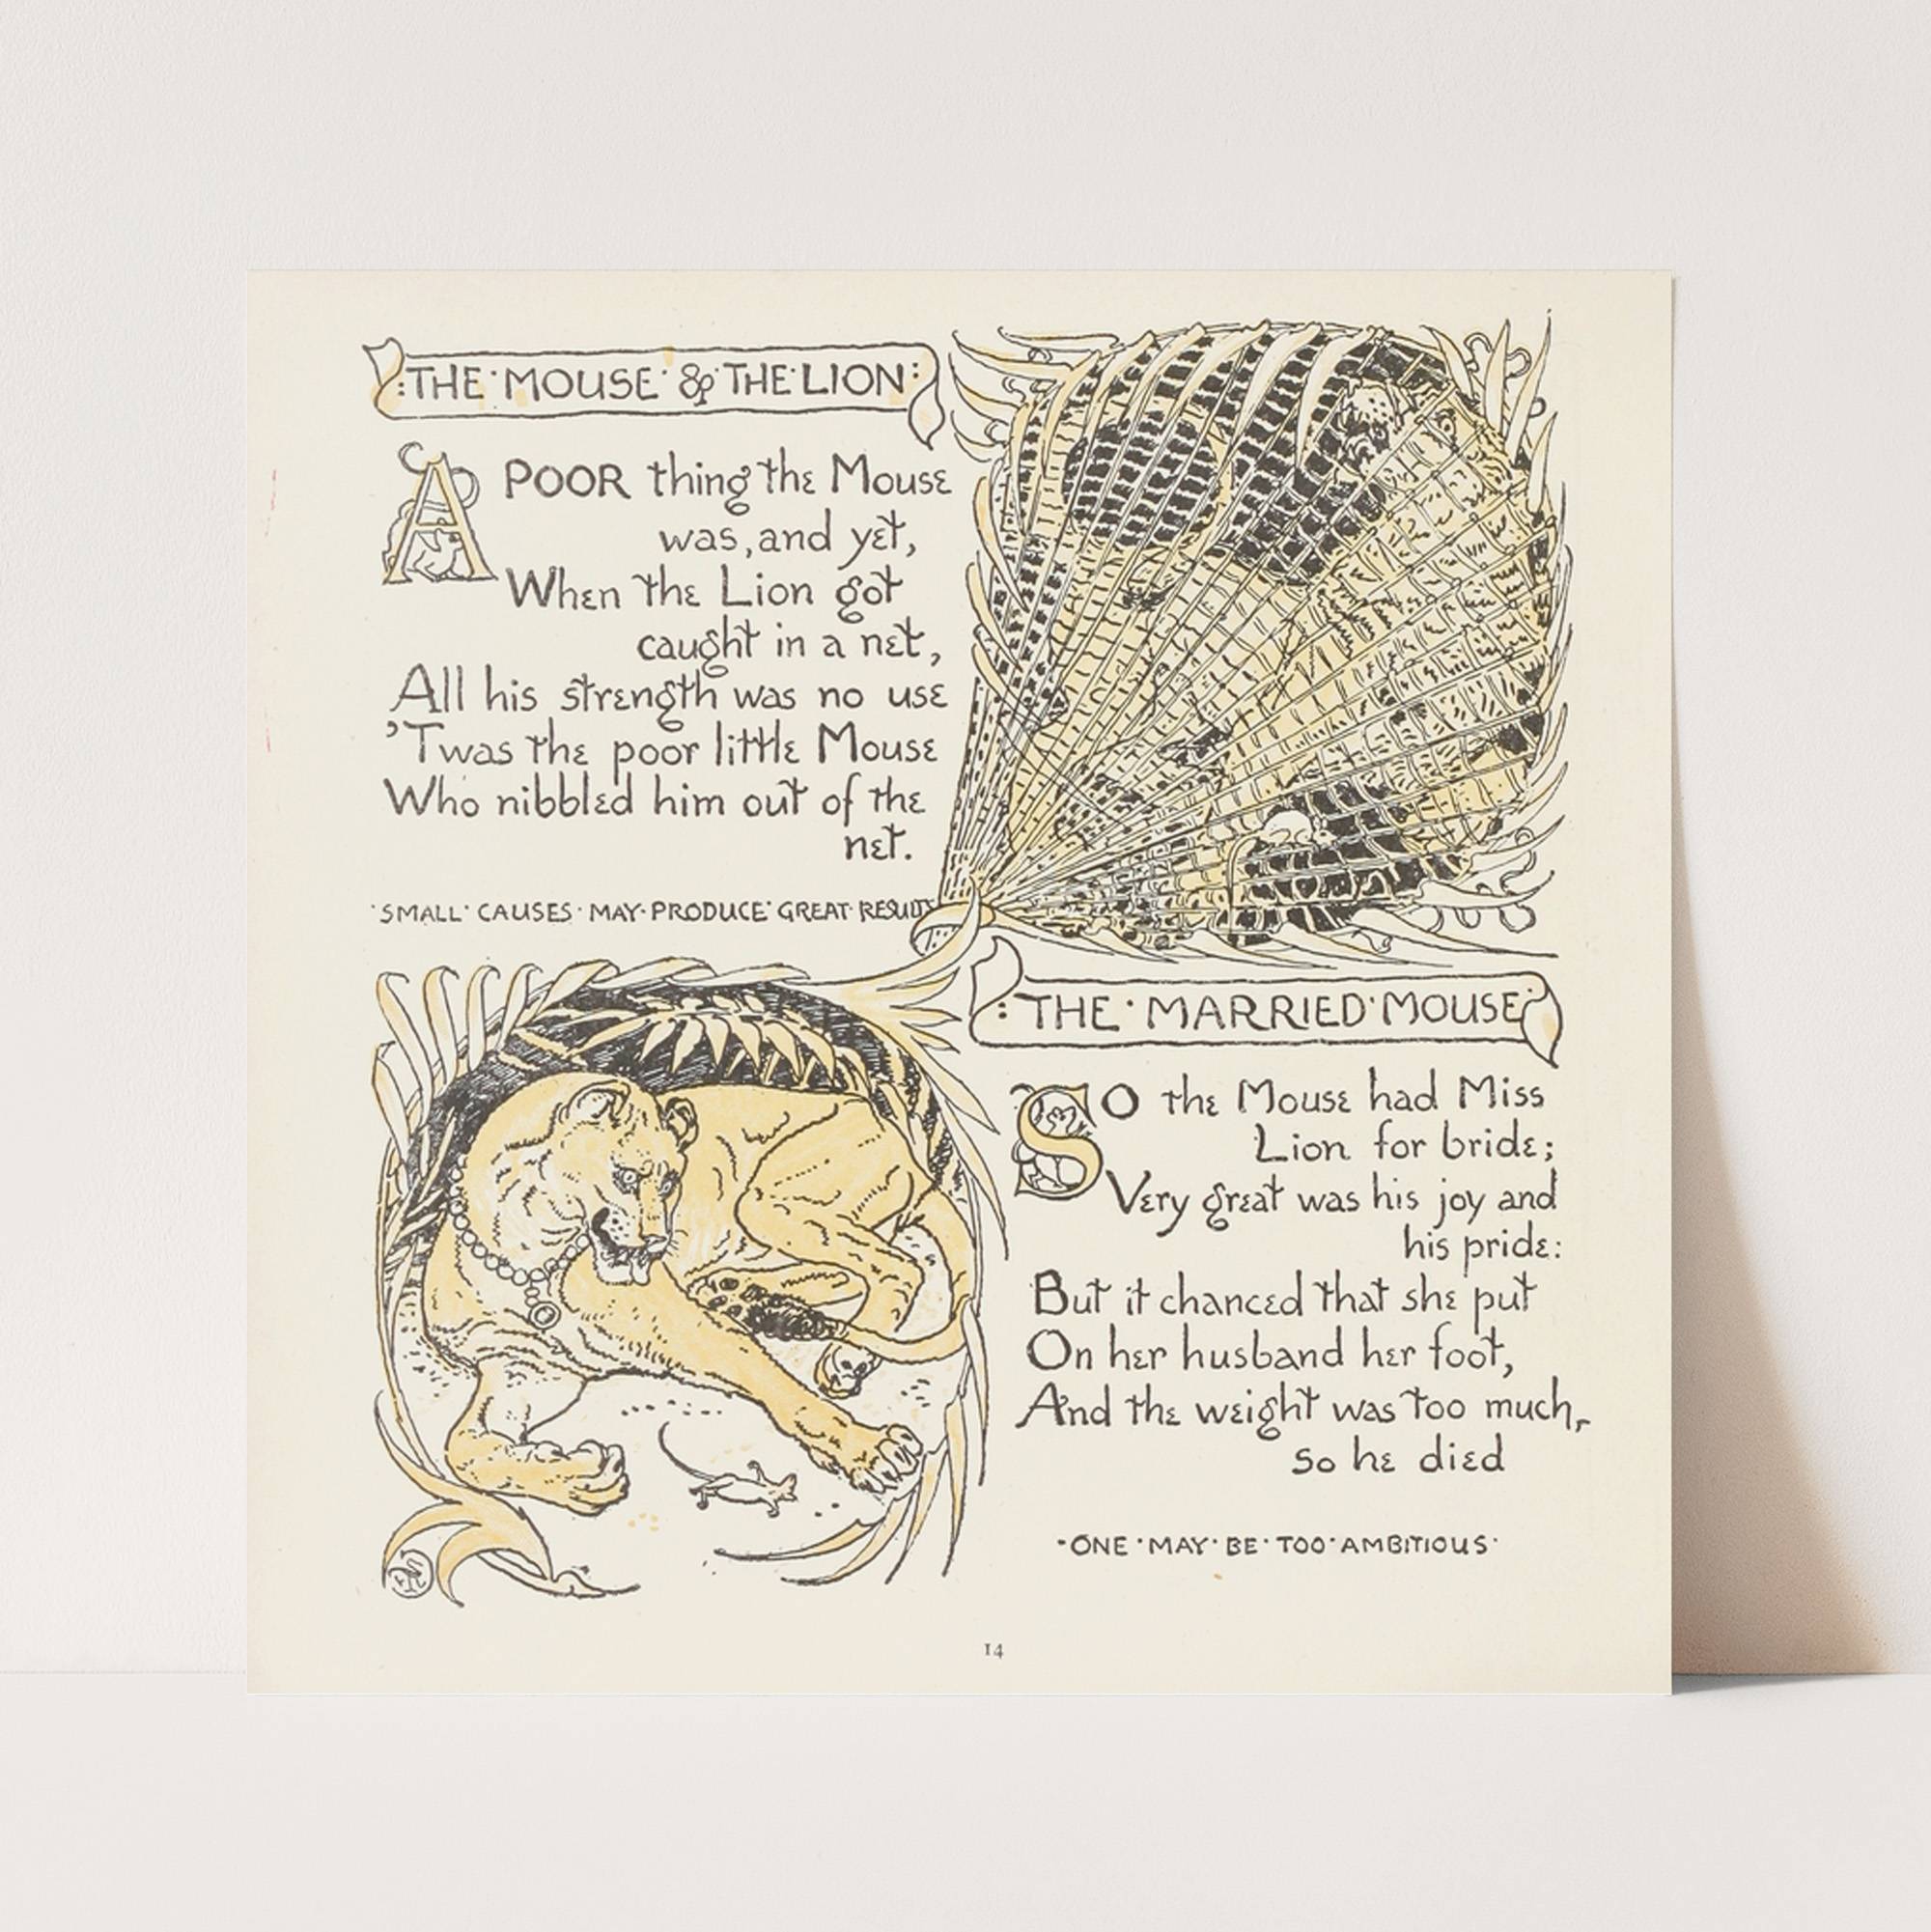 THE · MOUSE · & · THE · LION
A POOR thing the Mouse
was, and yet,
When the Lion got
caught in a net,
All his strength was no use
'Twas the poor little Mouse
Who nibbled him out of the
net.
· SMALL · CAUSES · MAY · PRODUCE · GREAT · RESULTS
THE · MARRIED · MOUSE
SO the Mouse had Miss
Lion for bride;
Very great was his joy and
his pride:
But it chanced that she put
On her husband her foot,
And the weight was too much,
so he died
· ONE · MAY · BE · TOO · AMBITIOUS ·
14